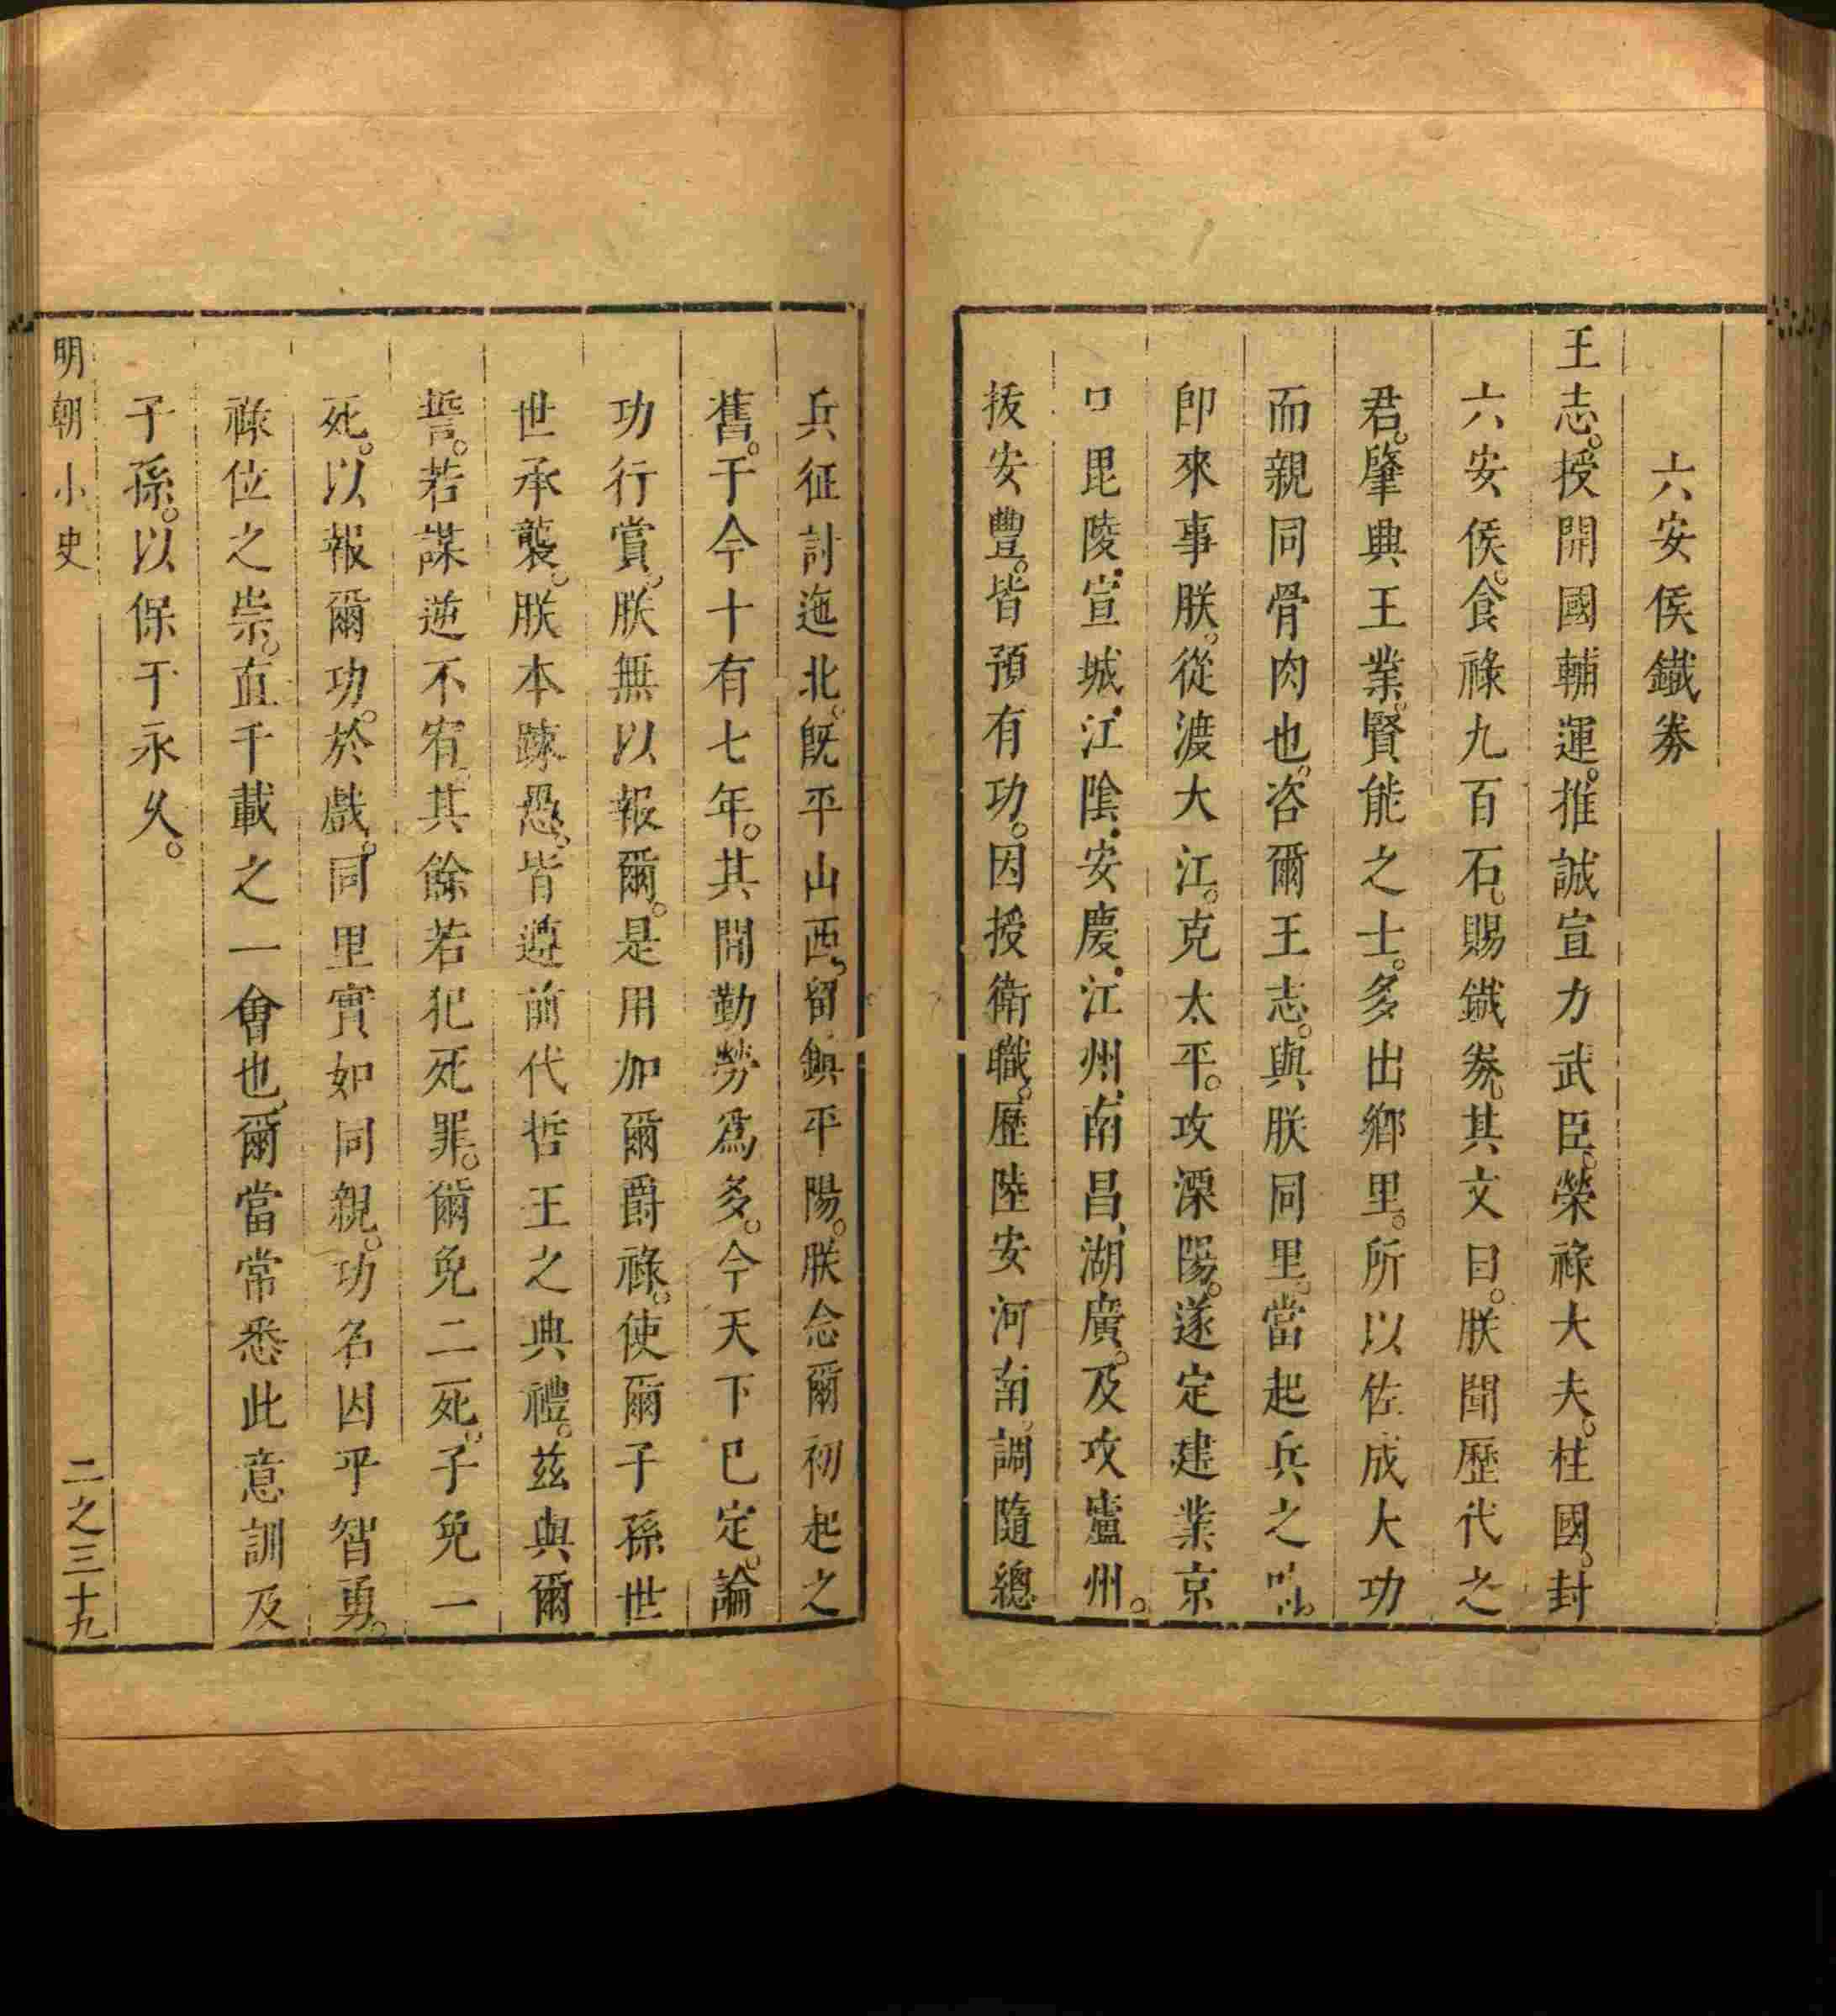 六安侯鐵券
王志。授開國輔運。推誠宣力武臣。榮祿大夫。柱國。封
六安侯。食祿九百石。賜鐵券。其文曰。朕聞歷代之
君。肇興王業。賢能之士。多出鄉里。所以佐成大功
而親同骨肉也。咨爾王志。與朕同里。當起兵之
即來事朕。從渡大江。克太平。攻溧陽。遂定建業京
口毘陵宣城江陰安慶江州南昌湖廣。及攻廬州。
拔安豐。皆預有功。因授衛職。歷陸安河南。調隨總
兵征討迤北。既平山西。留鎮平陽。朕念爾初起之
舊。于今十有七年。其間勤勞爲多。今天下已定。論
功行賞。朕無以報爾。是用加爾爵祿。使爾子孫世
世承襲。朕本疎愚。皆遵前代哲王之典禮。茲與爾
誓。若謀逆不宥。其餘若犯死罪。爾免二死。子免一
死。以報爾功。於戲。同里實如同親。功名因乎智勇。
祿位之崇。直千載之一會也。爾當常悉此意訓及
子孫。以保于永久。
明朝小史
二之三十九